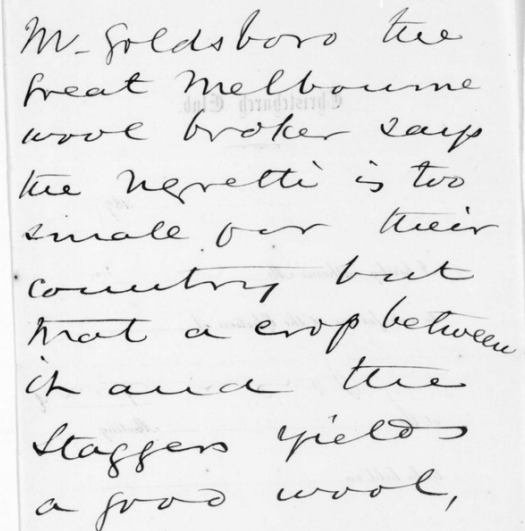 Mr Goldsboro the
great Melbourne
wool broker says
the Negretti is too
small for their
country but
that a crop between
it and the
Staggers yields
a good wool,
Christchurch
Club